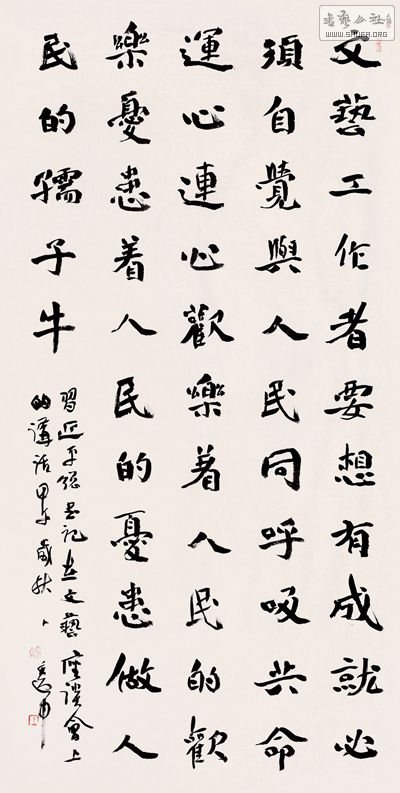 文藝工作者要想有成就必
須自覺與人民同呼吸共命
運心連心歡樂着人民的歡
樂憂患着人民的憂患做人
民的孺子牛
習近平總書記在文藝座談會上
的講話甲午歲秋
書藝公社
WWW.SHUFA.ORG